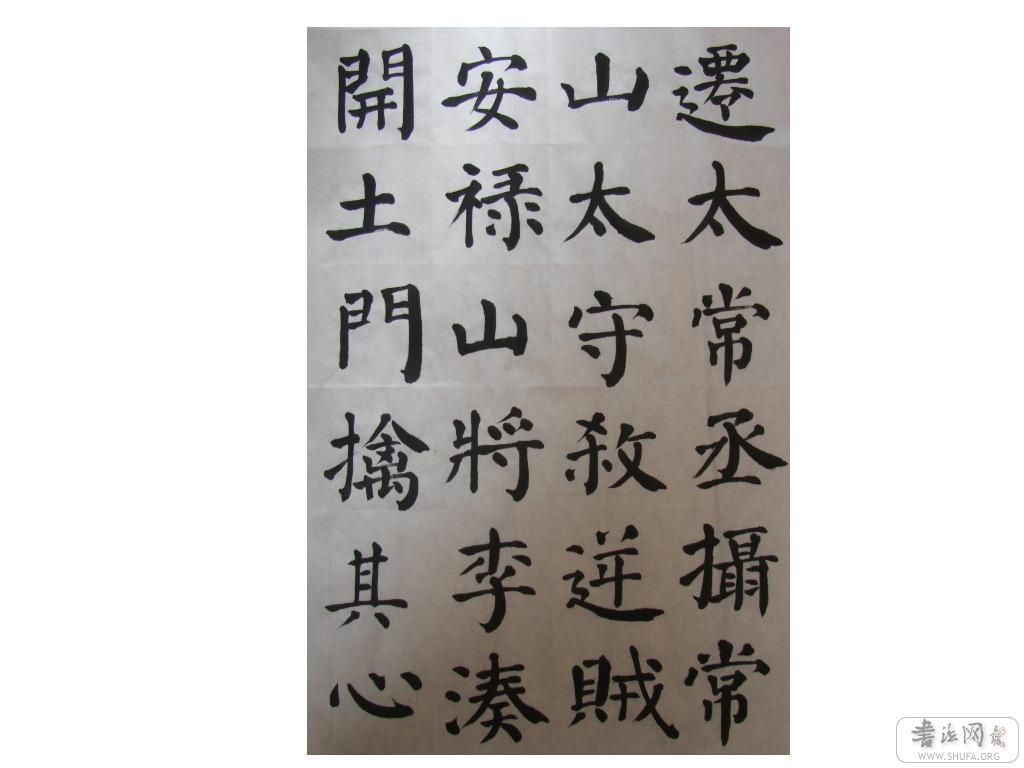 遷太常丞攝常
山太守殺逆賊
安禄山將李湊
開土門擒其心
書法网
WWW.SHUFA.ORG